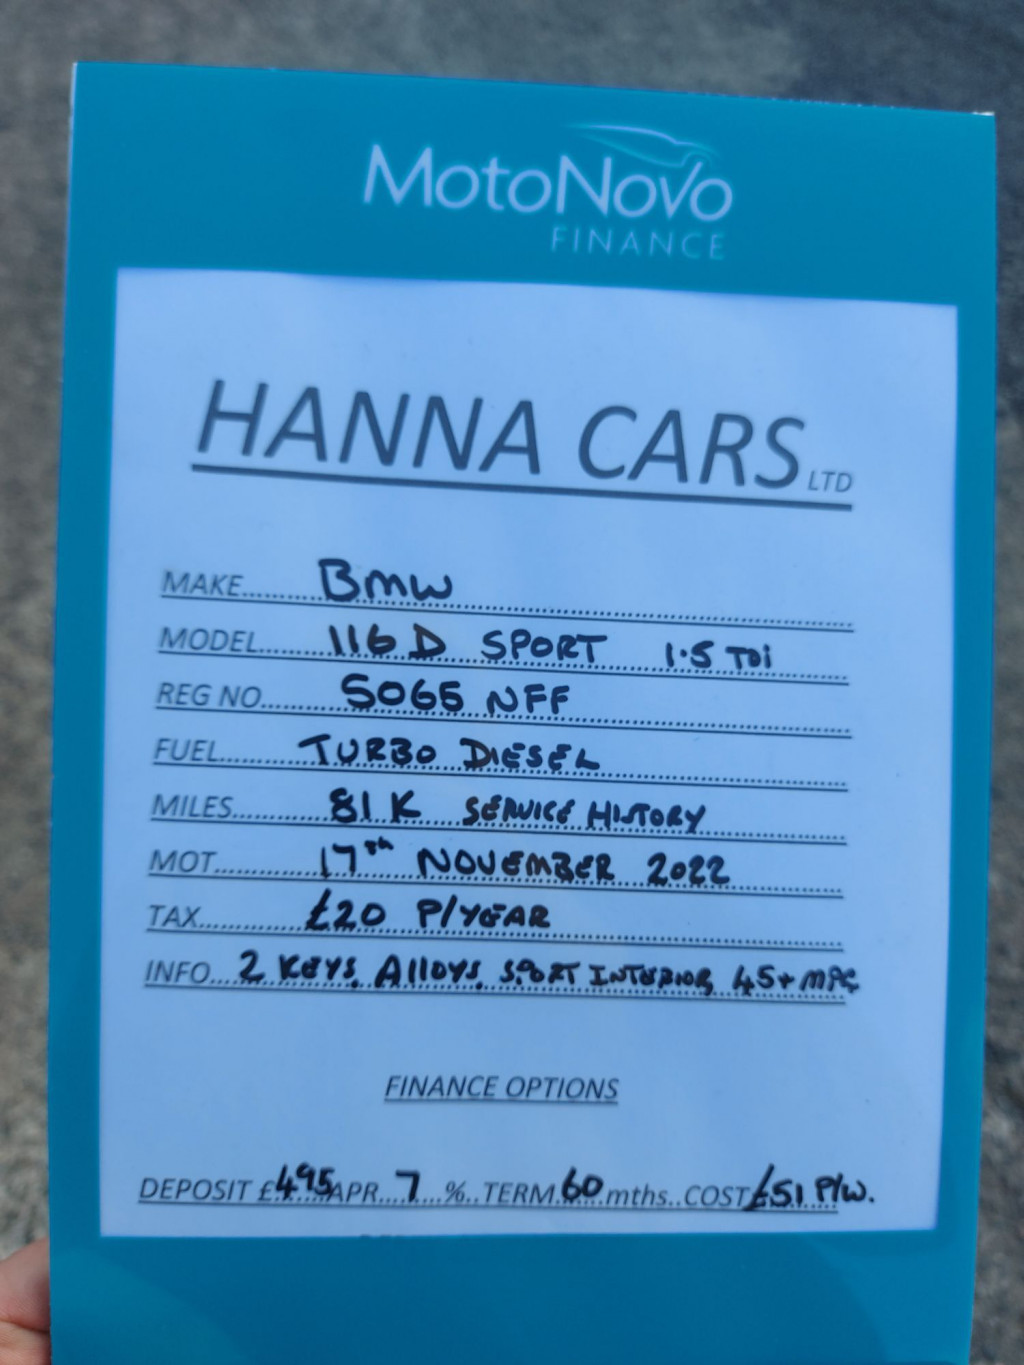 MotoNovo
FINANCE
HANNA CARS LTD
MAKE......... BMW
MODEL......... 116 D SPORT 1.5 TDi
REG NO......... SO65 NFF
FUEL......... TURBO DIESEL
MILES......... 81 K SERVICE HISTORY
MOT......... 17th NOVEMBER 2022
TAX......... £20 P/YEAR
INFO... 2 KEYS, Alloys, SPORT INTERIOR, 45+ MPG
FINANCE OPTIONS
DEPOSIT £495 APR...7...%..TERM.60 mths..COST £51 P/W.